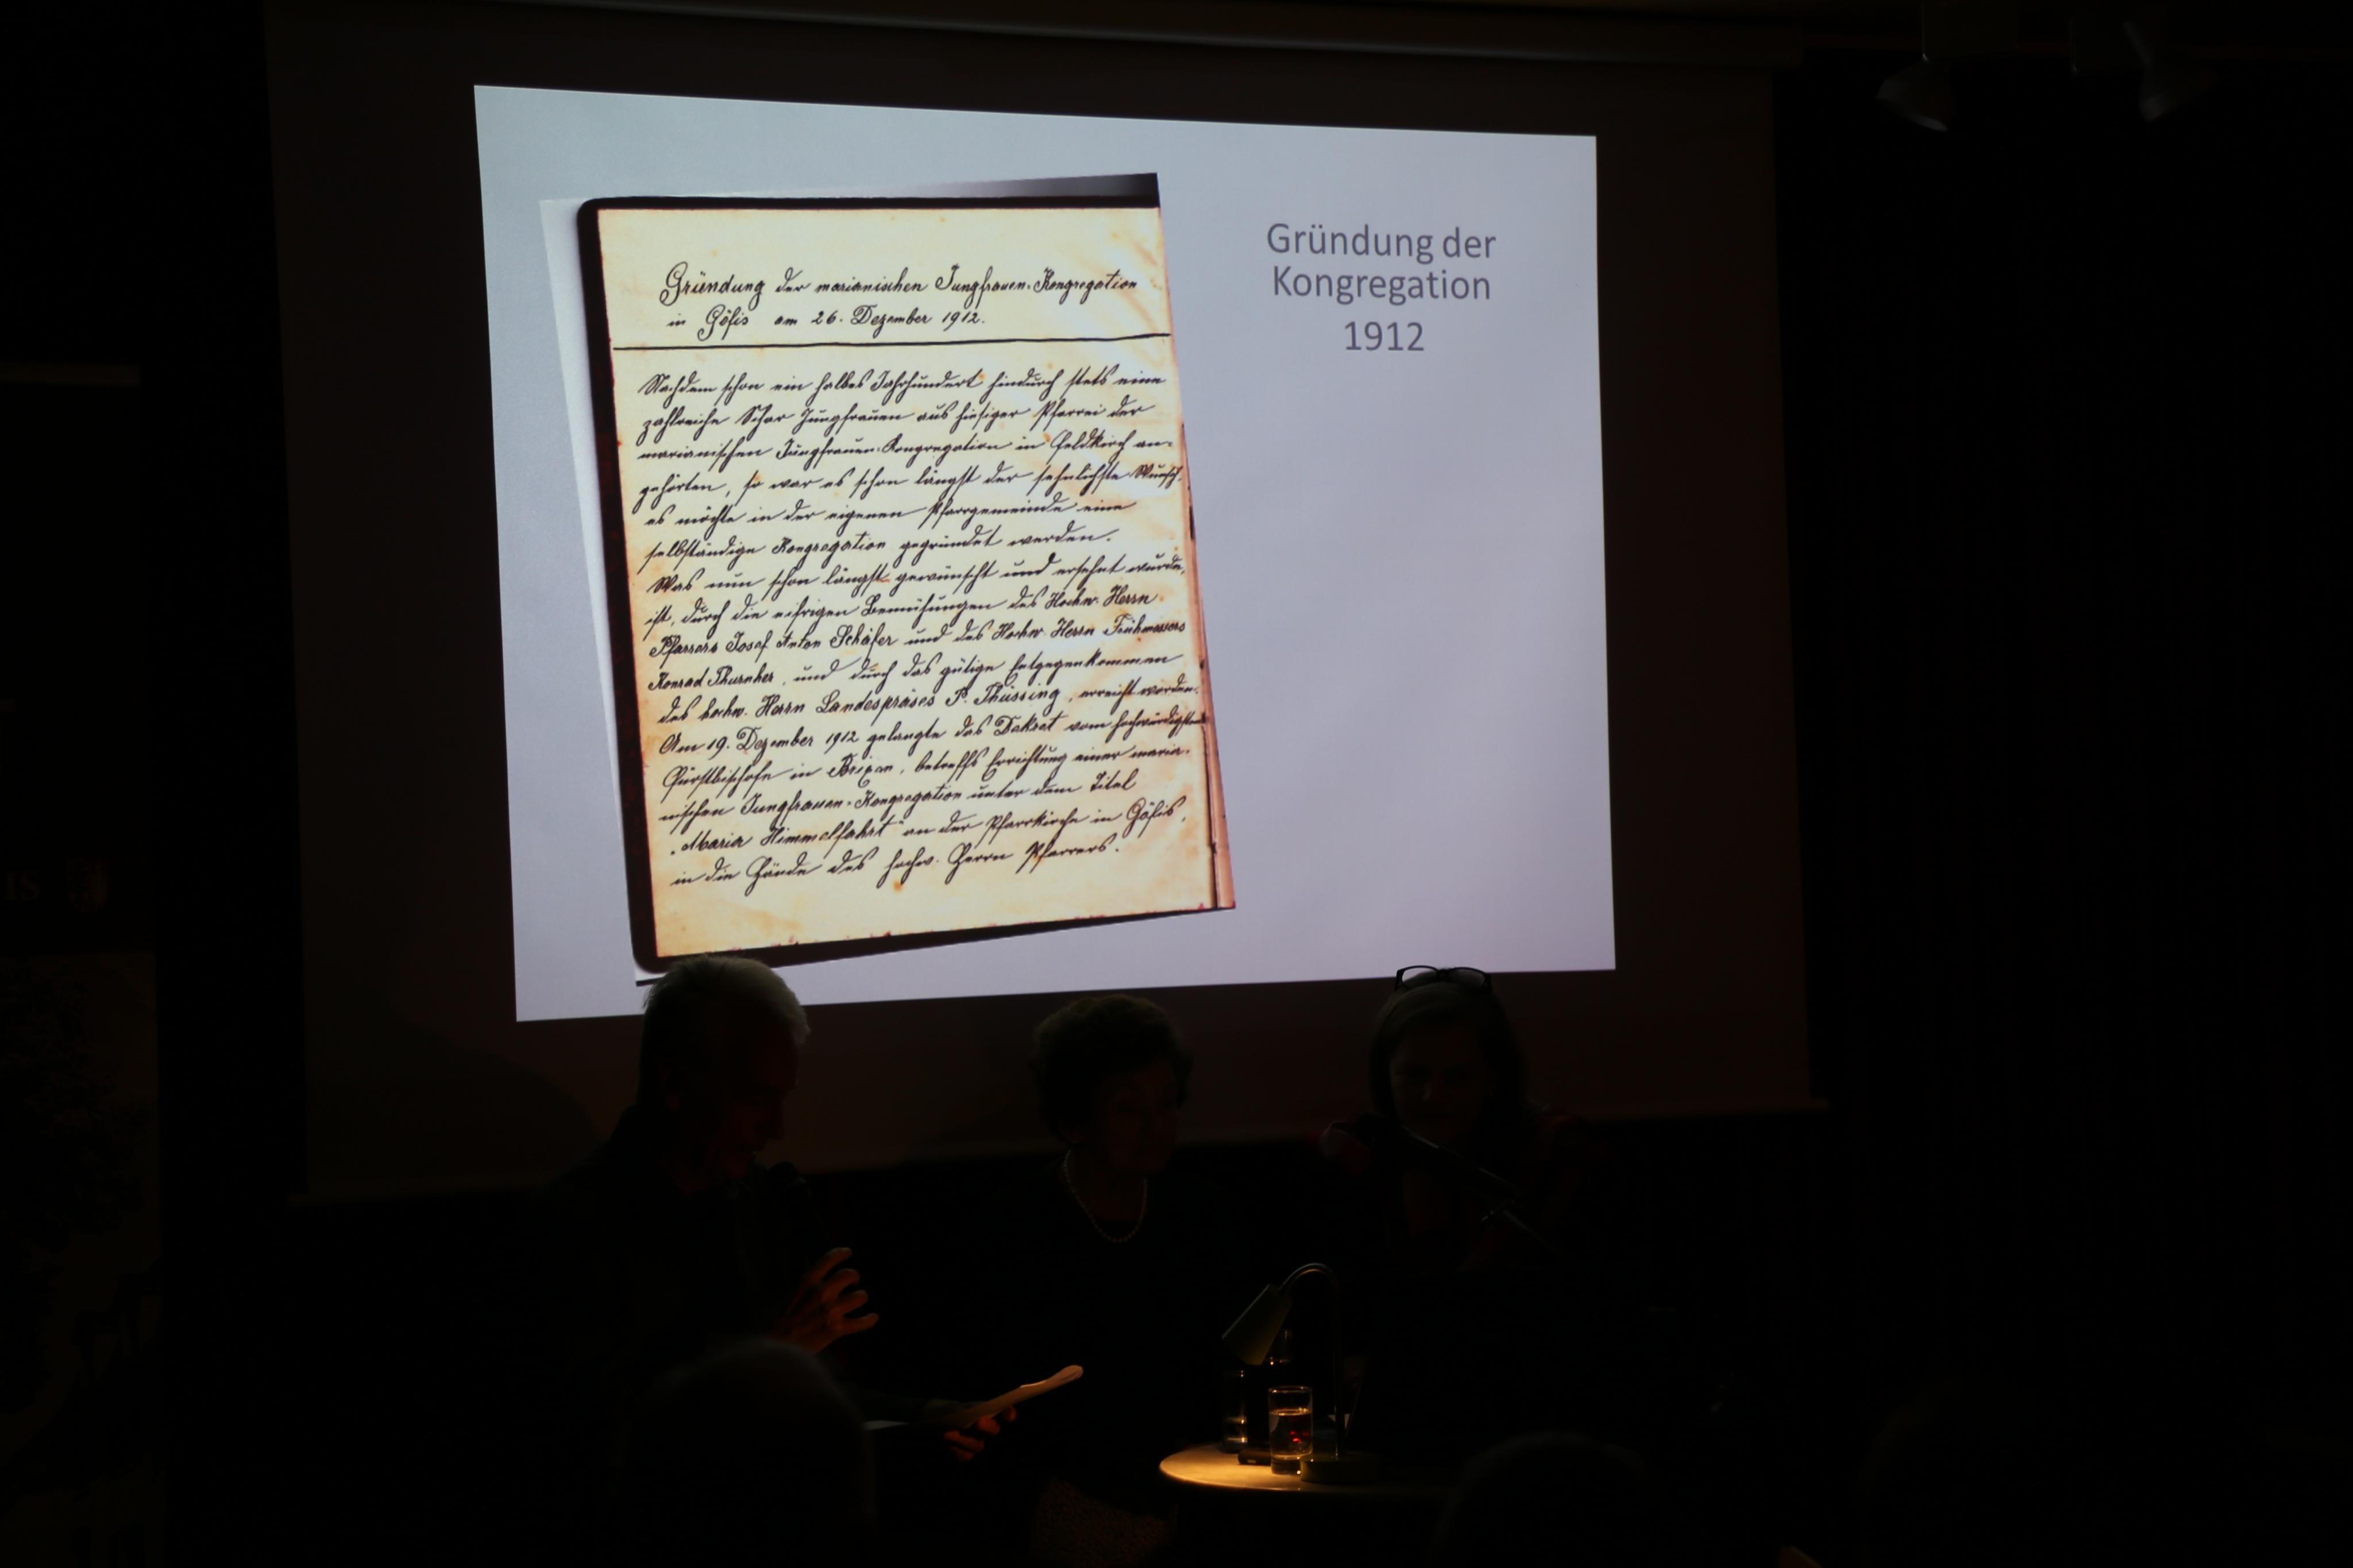 Gründung der marianischen Jungfrauen-Kongregation
in Göfis am 26. Dezember 1912.
Nachdem schon ein halbes Jahrhundert hindurch stets eine
zahlreiche Schar Jungfrauen aus hiesiger Pfarrei der
marianischen Jungfrauen-Kongregation in Feldkirch an-
gehörten, so war es schon längst der sehnlichste Wunsch,
es möchte in der eigenen Pfarrgemeinde eine
selbständige Kongregation gegründet werden.
Was nun schon längst gewünscht und ersehnt wurde,
ist, durch die eifrigen Bemühungen des Hochw. Herrn
Pfarrers Josef Anton Schäfer und des Hochw. Herrn Frühmessers
Konrad Thurnher, und durch das gütige Entgegenkommen
des hochw. Herrn Landespräses P. Thüssing, erreicht worden.
Am 19. Dezember 1912 gelangte das Dekret vom hochwürdigsten
Fürstbischofe in Brixen, betreffs Errichtung einer maria-
nischen Jungfrauen-Kongregation unter dem Titel
„Maria Himmelfahrt" an der Pfarrkirche in Göfis,
in die Hände des hochw. Herrn Pfarrers.
Gründung der
Kongregation
1912
IS